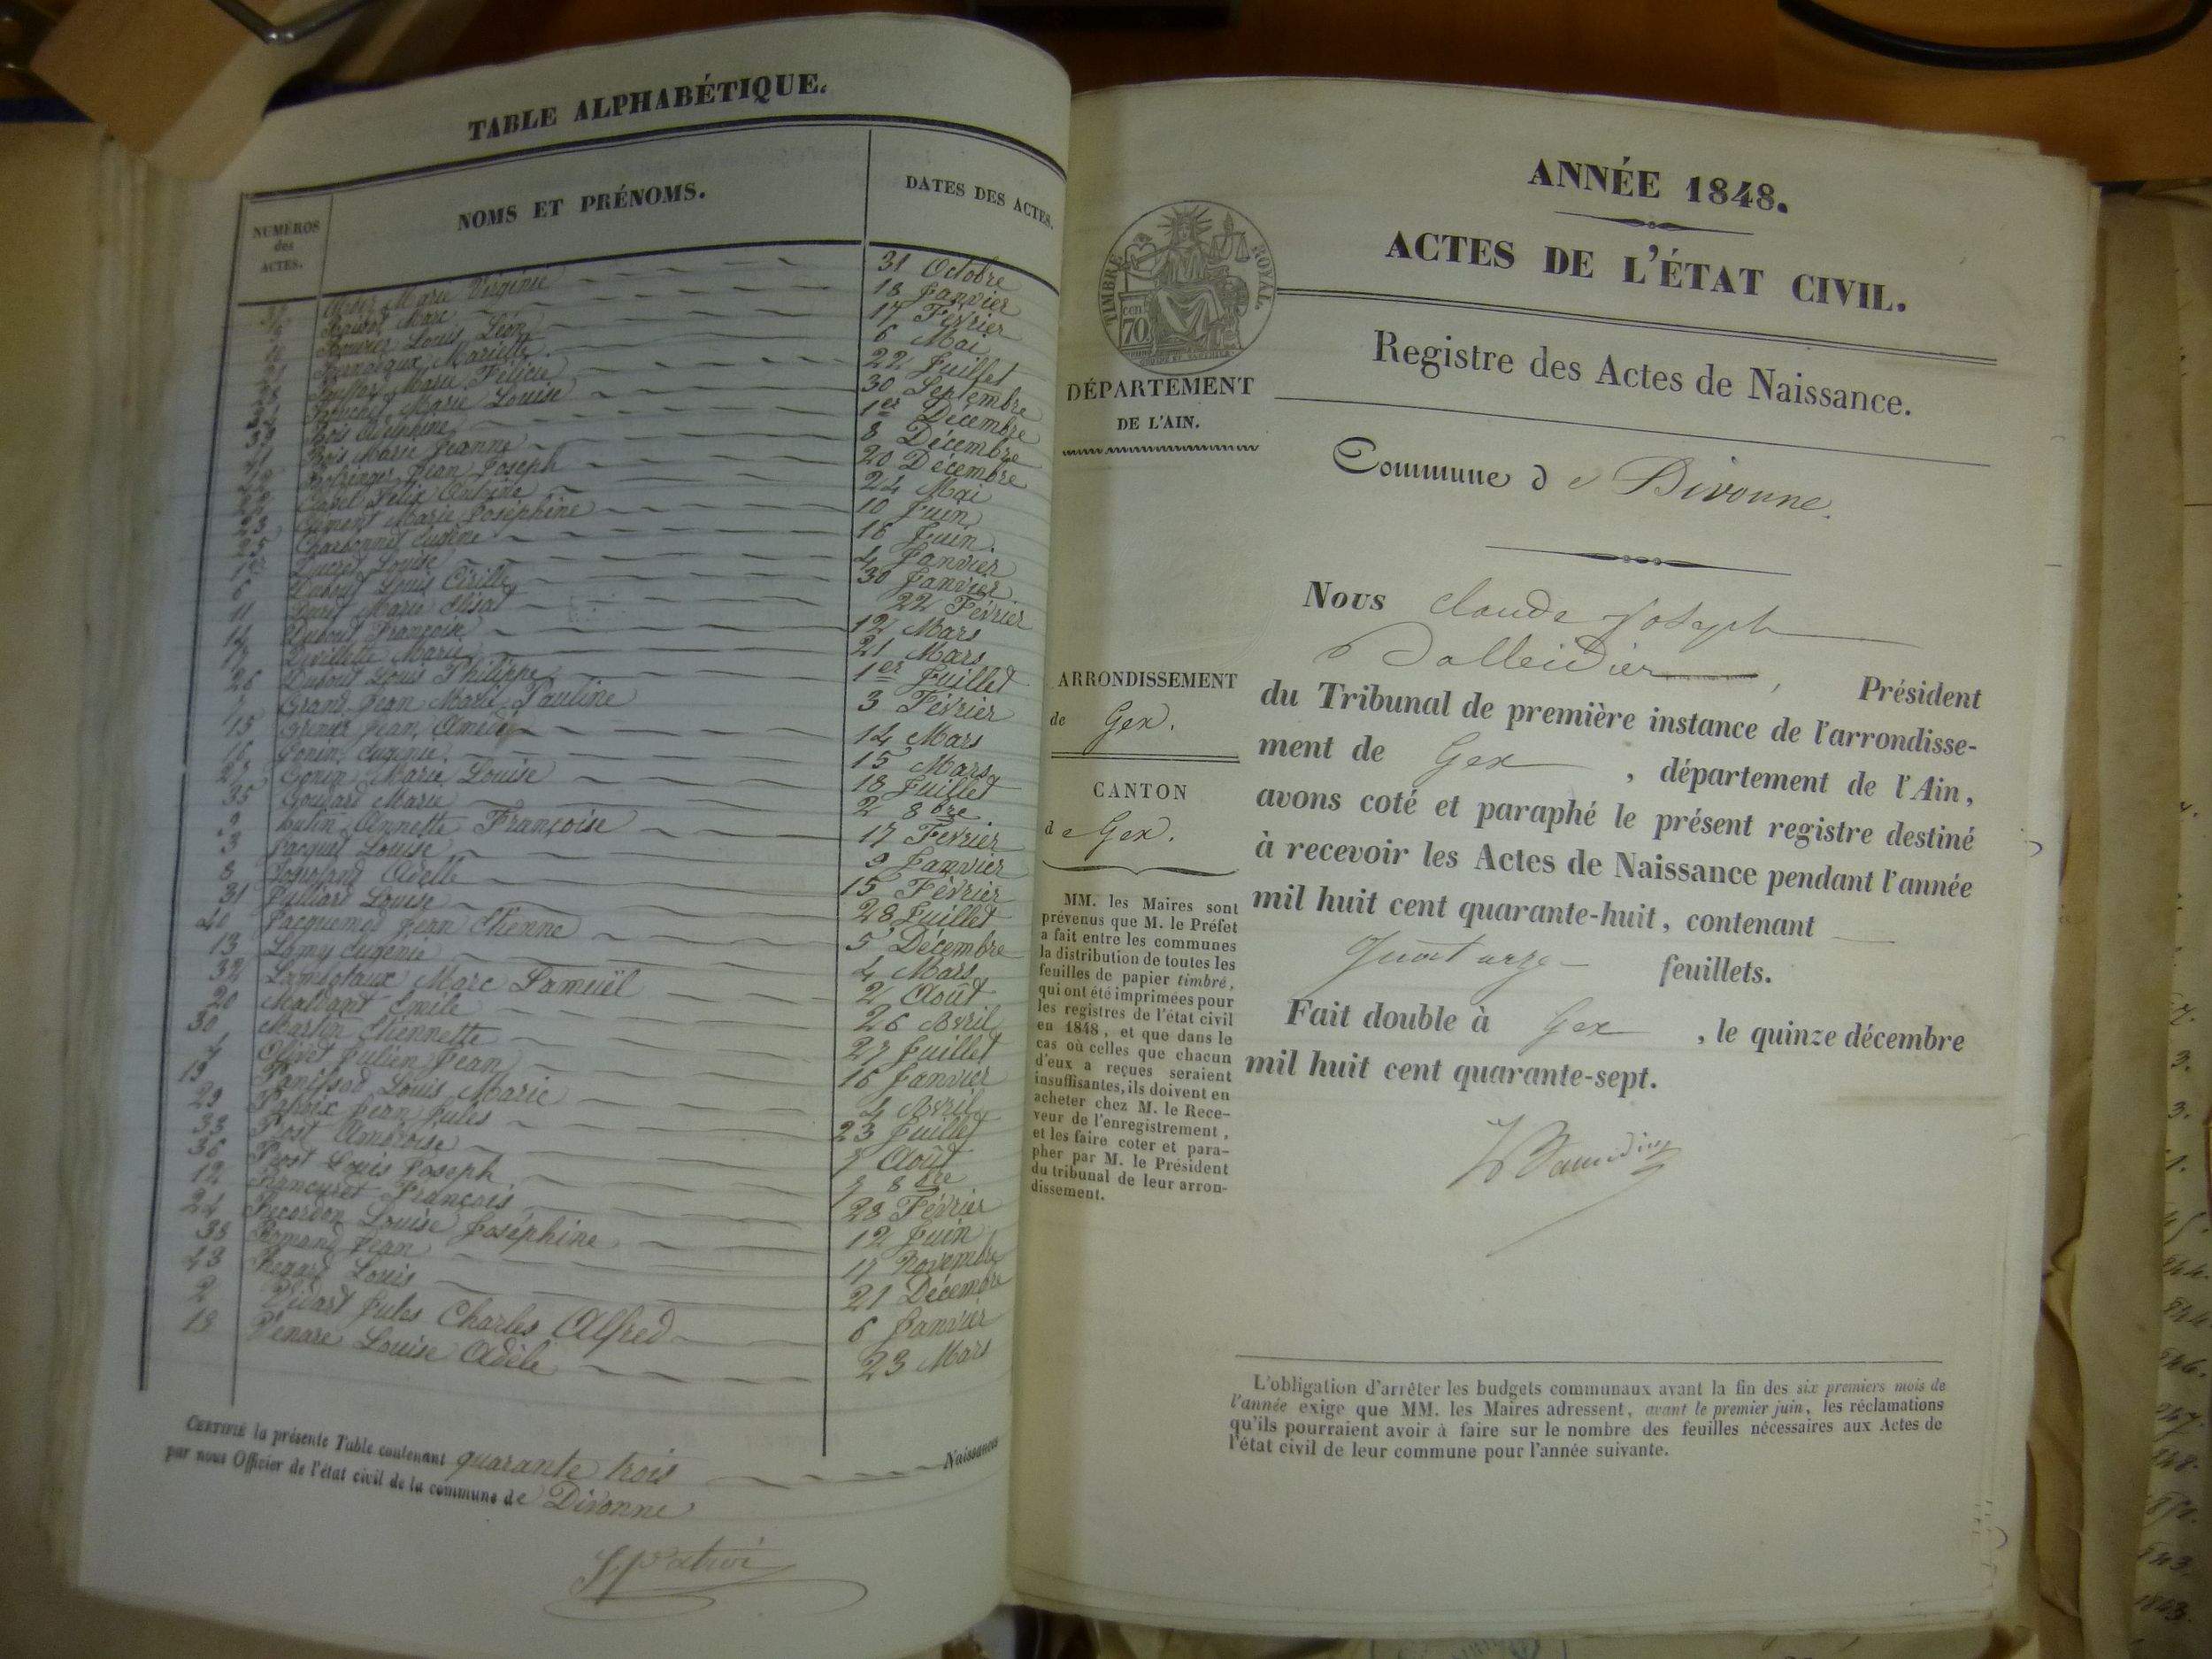 TABLE ALPHABÉTIQUE.
NUMÉROS
des
ACTES.
NOMS ET PRÉNOMS.
DATES DES ACTES.
Marie Virginie 31 Octobre
Marc 18 Janvier
Louis Léon 17 Février
Mariette 6 Mai
Marie Félicie 22 Juillet
Marie Louise 30 Septembre
Bois Delphine 1er Décembre
Bois Marie Jeanne 8 Décembre
Jean Joseph 20 Décembre
Félix Antoine 24 Mai
Marie Joséphine 10 Juin
23 Charbonnet Eugène 16 Juin
Ducret Louise 4 Janvier
6 Dubout Louis 30 Janvier
11 Marie Elisa 22 Février
14 Dubout Françoise 12 Mars
17 Marie 21 Mars
26 Dubout Louis Philippe 1er Juillet
7 Grand Jean Marie Pauline 3 Février
15 Jean Amédé 14 Mars
16 Gonin Eugénie 15 Mars
27 Gonin Marie Louise 18 Juillet
35 Marie 2 8bre
9 Annette Françoise 17 Février
3 Jacquet Louise 9 Janvier
8 Adelle 15 Février
31 Julliard Louise 28 Juillet
40 Jacquemed Jean Etienne 5 Décembre
13 Lamy Eugénie 4 Mars
32 Marc Samuël 2 Août
20 Emile 26 Avril
30 Martin Etiennette 27 Juillet
4 Olivet Julien Jean 16 Janvier
19 Louis Marie 4 Avril
29 Jean Jules 23 Juillet
33 Prost Ambroise 7 Août
36 Prost Louis Joseph 7 8bre
12 François 28 Février
24 Recordon Louise Joséphine 12 Juin
38 Romand Jean 17 Novembre
43 Louis 21 Décembre
2 Jules Charles Alfred 6 Janvier
18 Louise Adèle 23 Mars
CERTIFIÉ la présente Table contenant quarante trois Naissances
par nous Officier de l'état civil de la commune de Divonne
ANNÉE 1848.
ACTES DE L'ÉTAT CIVIL.
TIMBRE ROYAL
70 cen
Registre des Actes de Naissance.
DÉPARTEMENT
DE L'AIN.
Commune de Divonne.
Nous Claude Joseph
, Président
du Tribunal de première instance de l'arrondisse-
ment de Gex , département de l'Ain,
avons coté et paraphé le présent registre destiné
à recevoir les Actes de Naissance pendant l'année
mil huit cent quarante-huit, contenant
Quatorze feuillets.
Fait double à Gex , le quinze décembre
mil huit cent quarante-sept.
ARRONDISSEMENT
de Gex.
CANTON
de Gex.
MM. les Maires sont
prévenus que M. le Préfet
a fait entre les communes
la distribution de toutes les
feuilles de papier timbré,
qui ont été imprimées pour
les registres de l'état civil
en 1848, et que dans le
cas où celles que chacun
d'eux a reçues seraient
insuffisantes, ils doivent en
acheter chez M. le Rece-
veur de l'enregistrement,
et les faire coter et para-
pher par M. le Président
du tribunal de leur arron-
dissement.
L'obligation d'arrêter les budgets communaux avant la fin des six premiers mois de
l'année exige que MM. les Maires adressent, avant le premier juin, les réclamations
qu'ils pourraient avoir à faire sur le nombre des feuilles nécessaires aux Actes de
l'état civil de leur commune pour l'année suivante.